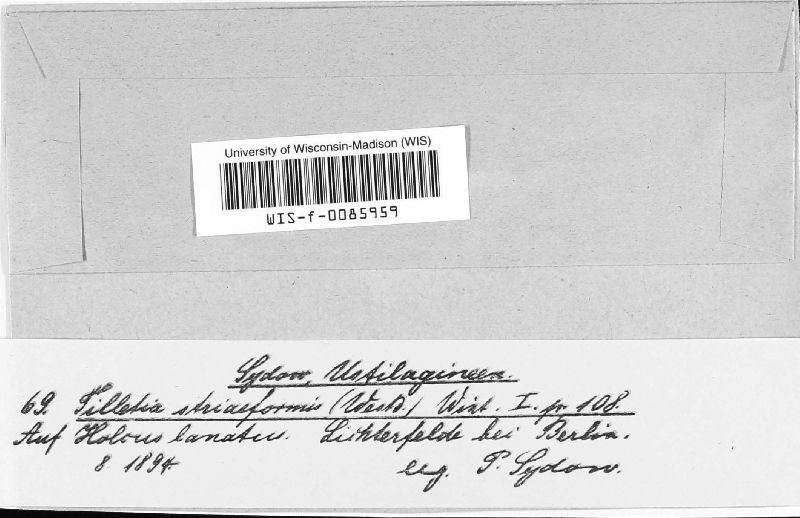 University of Wisconsin-Madison (WIS)
WIS-f-0085959
Sydow, Ustilagineen.
69. Tilletia striaeformis (Westd.) Wint. I. p. 108.
Auf Holcus lanatus. Lichterfelde bei Berlin.
8 1894 leg. P. Sydow.